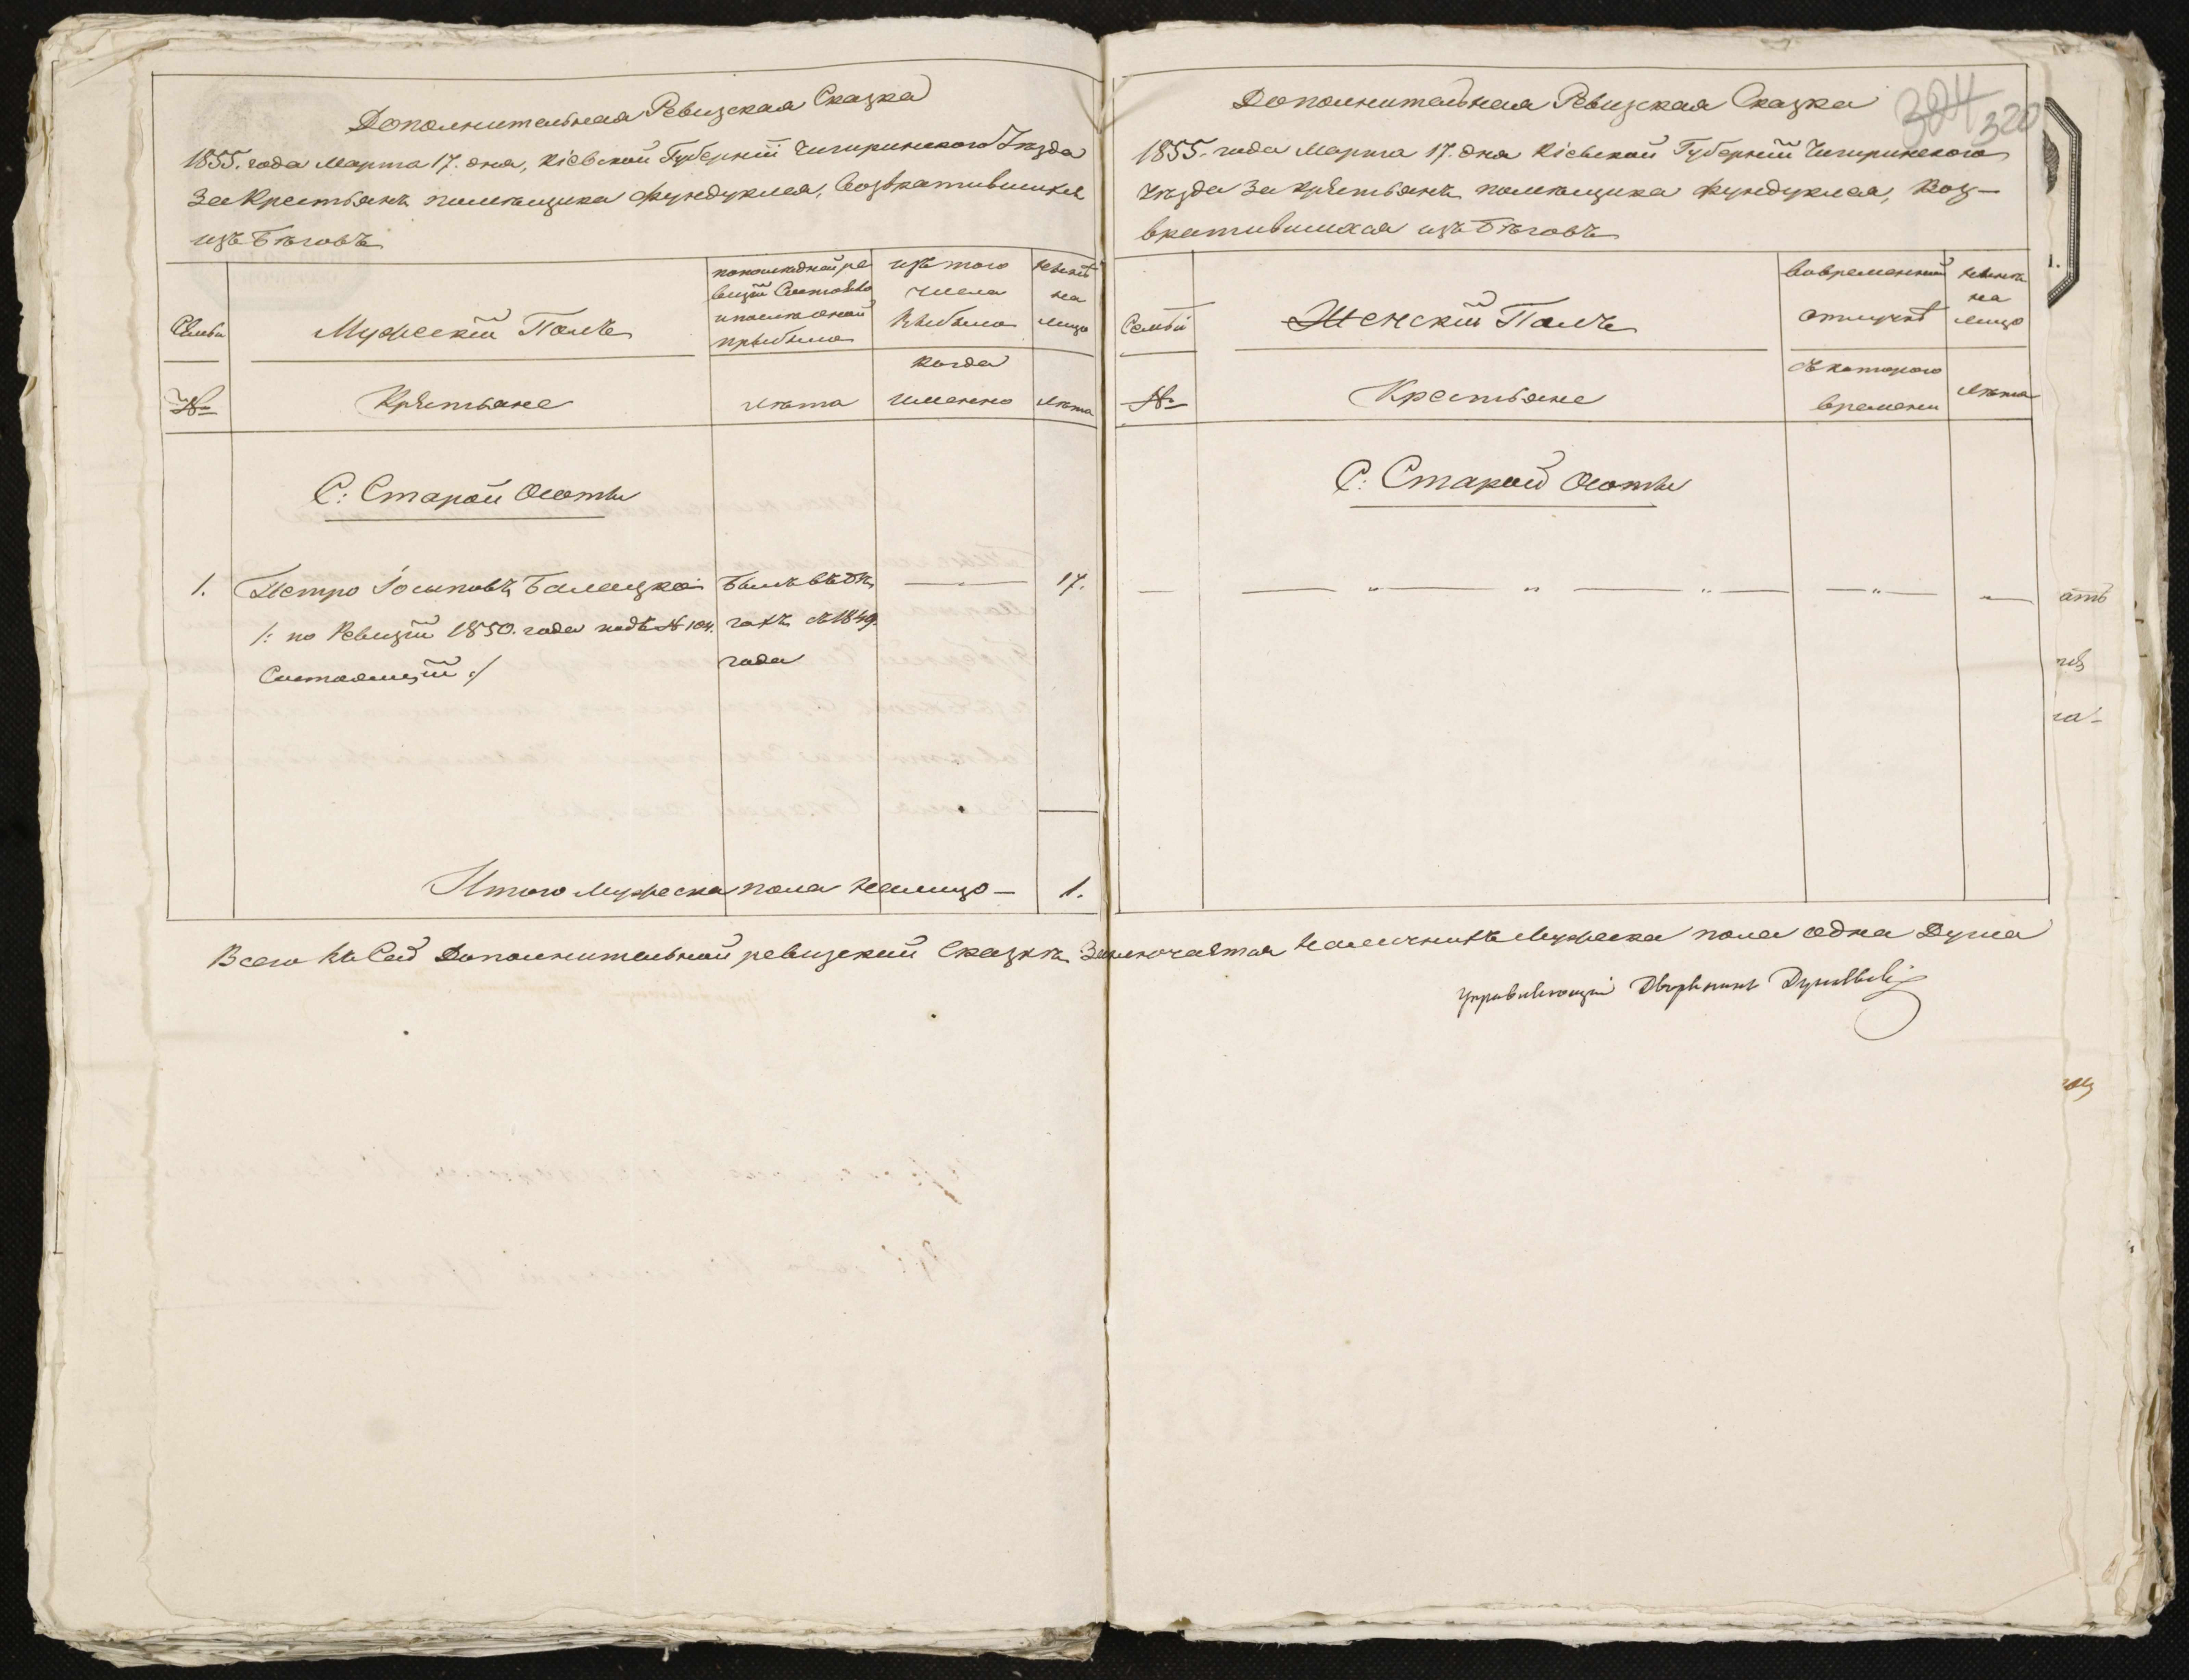 Дополнительная Ревизская Сказка
1855. года Марта 17. дня, Кіевской Губерніи Чигиринского Уезда
За Крестьянъ помѣщика Фундуклея, Возвратившихся
изъ Бѣговъ
Семьи
Мужескій Полъ
по последней ре
визіи Состояло
и после оной
прыбыло
изъ того
числа
Выбыло
нынѣ
на
лицо
№
Крестьяне
лѣта
когда
именно
лѣта
С: Старой Осоты
1.
Петро Іосиповъ Балацкой
Былъ въ бѣ
17.
/: по Ревизіи 1850. года подъ № 104.
гахъ съ 1849.
Состоящій :/
года
Итого Мужеска пола налицо —
1.
Дополнительная Ревизская Сказка
324 320
1855. года Марта 17. дня Кіевской Губерніи Чигиринского
Уѣзда За крестьянъ помѣщика Фундуклея, Воз-
вратившихся изъ Бѣговъ
1.
Семьи
Женскій Полъ
Вовременной
отлучкѣ
нынѣ
на
лицо
№
Крестьяне
съ которого
времени
лѣта
С: Старой Осоты
— — " — " — " — — " — "—
Всего въ Сей Дополнительной ревизской Сказкѣ Заключается Наличныхъ Мужеска пола одна Душа
Управляющій Дворянинъ